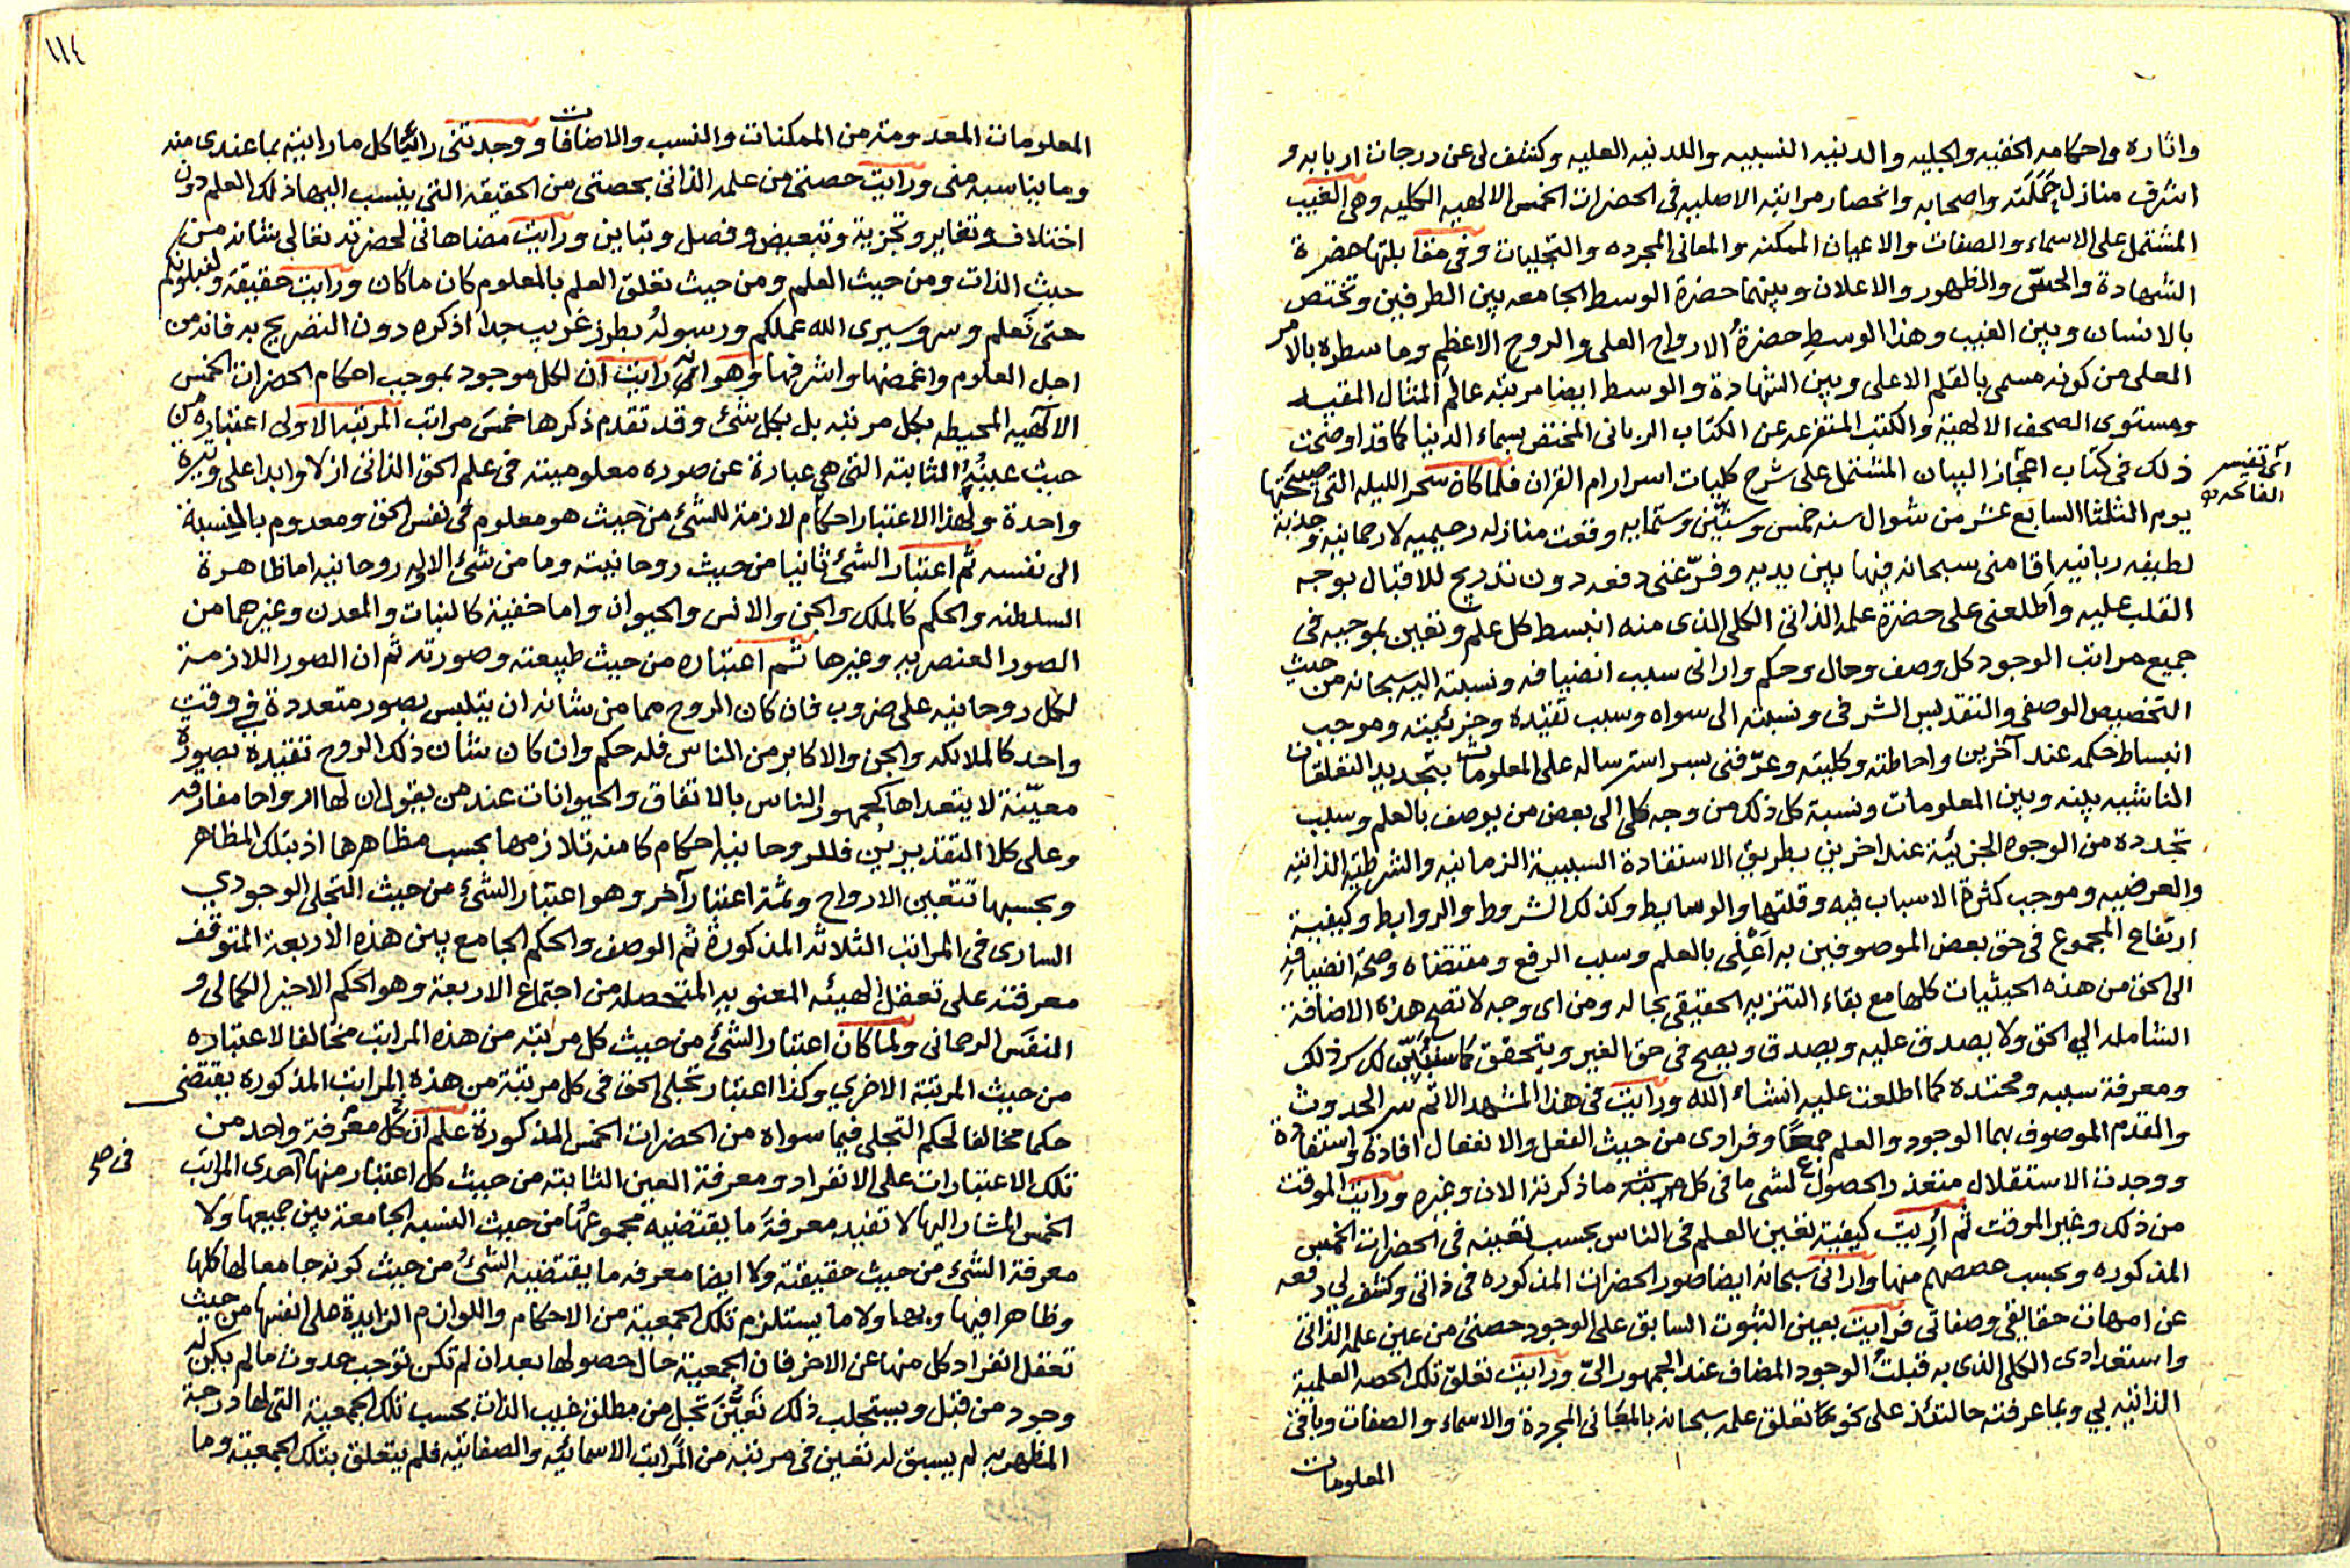 واثاره واحكامه الخفيه والجليه والدينيه النسبيه واللدنيه العليه وكشف لى عن درجات اربابه و
اشرف منازل حَمَلَتَه واصحابه وانحصار مراتبه الاصليه فى الحضرات الخمس الالهيه الكليه وهى الغيب
المشتمل على الاسماء والصفات والاعيان الممكنه والمعانى المجرده والتجليات وفى مقابلتها حضرة
الشهادة والحسّ والظهور والاعلان وبينهما حضرة الوسط الجامعه بين الطرفين وتختص
بالانسان وبين الغيب وهذا الوسطِ حضرةُ الارواح العلى والروح الاعظم وما سطره بالامر
المعلى من كونه مسمى بالقلم الاعلى وبين الشهادة والوسط ايضا مرتبه عالم المثال المقيد
ومستوى الصحف الالهية والكتب المتفرعه عن الكتاب الربانى المختص بسماء الدنيا كما قد اوضحت
ذلك فى كتاب اعجاز البيان المشتمل على شرح كليات اسرار ام القران فلما كان سحر الليله التى صبيحتها
اى تفسير
الفاتحه
يوم الثلثا السابع عشر من شوال سنه خمس وستين وستمايه وقعت منازله رحيميه لا رحمانيه وجذبة
لطيفه ربانيه اقامنى سبحانه فيها بين يديه وفرّغنى دفعه دون تدريج للاقبال بوجه
القلب عليه واطلعنى على حضرة علمه الذاتى الكلى الذى منه انبسط كل علم وتعين بموجبه فى
جميع مراتب الوجود كل وصف وحال وحكم وارانى سبب انضيافه ونسبته اليه سبحانه من حيث
التخصيص الوصفى والتقديس الشرفى ونسبته الى سواه وسبب تقيّده وجزئيته وموجب
انبساط حكمه عند آخرين واحاطته وكليته وعرّفنى بسر استرساله على المعلومات بتجديد التعلقات
الناشيه بينه وبين المعلومات ونسبة كل ذلك من وجه كلى الى بعض من يوصف بالعلم وسبب
تجدده من الوجوه الجزئية عند اخرين بطريق الاستفادة السببية الزمانيه والشرطية الذاتيه
والعرضيه وموجب كثرة الاسباب فيه وقلتها والوسايط وكذلك الشروط والروابط وكيفية
ارتفاع المجموع فى حق بعض الموصوفين به اَعْنِى بالعلم وسبب الرفع ومقتضاه وصحة انضيافه
الى الحق من هذه الحيثيات كلها مع بقاء التنزيه الحقيقى بحاله ومن اى وجه لا تصح هذه الاضافة
الشامله الى الحق ولا يصدق عليه ويصدق ويصح فى حق الغير ويتحقق كما سَنُبَيِّن لك سر ذلك
ومعرفة سببه ومحتده كما اطلعت عليه انشاء الله ورايت فى هذا المشهد الاتم سر الحدوث
والقدم الموصوف بهما الوجود والعلم جمعًا وفرادى من حيث الفعل والانفعال افادة واستفادة
ووجدت الاستقلال متعذر الحصول لشى ما فى كل مرتبته ما ذكرته الان وغيره ورايت الموقت
من ذلك وغير الموقت ثم اُرِيت كيفية تعين العلم فى الناس بحسب تعينه فى الحضرات الخمس
المذكوره وبحسب حصصهم منها وارانى سبحانه ايضا صور الحضرات المذكوره فى ذاتى وكشف لى دفعه
عن امهات حقايقى وصفاتى فرايت بعين الثبوت السابق على الوجود حصتى من عين علمه الذاتى
واستعدادى الكلى الذى به قبلتُ الوجود المضاف عند الجمهور الىّ ورايت تعلّق تلك الحصه العلمية
الذاتيه بي وبما عرفته حالتئذ على نحو ما تعلق علمه سبحانه بالمعانى المجردة والاسماء والصفات وباقى
المعلومات
١١٤
المعلومات المعدومة من الممكنات والنسب والاضافات ووجدتنى رائيًا كل ما رايته بما عندى منه
وما يناسبه منى ورايت حصتى من علمه الذاتى بحصتى من الحقيقه التى ينسب اليها ذلك العلم دون
اختلاف وتغاير وتجزية وتبعيض وفصل وتباين ورايت مضاهاتى لحضرته تعالى شانه من
حيث الذات ومن حيث العلم ومن حيث تعلق العلم بالمعلوم كان ما كان ورايت حقيقة ولنبلونكم
حتى نعلم وسر وسيرى الله عملكم ورسولُه بطرز غريب جدا اذكره دون التصريح به فانه من
اجل العلوم واغمضها واشرفها وهو انى رايت ان لكل موجود بموجب احكام الحضرات الخمس
الالهيه المحيطه بكل مرتبه بل بكل شئ وقد تقدم ذكرها خمسَ مراتب المرتبه الاولى اعتباره من
حيث عينُهُ الثابته التى هى عبارة عن صوره معلوميته فى علم الحق الذاتى ازلا وابدا على وتيرة
واحدة ولهذا الاعتبار احكام لازمة للشئ من حيث هو معلوم فى نفس الحق ومعدوم بالنسبة
الى نفسه ثم اعتبار الشئ ثانيا من حيث روحانيته وما من شئ الا وله روحانيه اما ظاهرة
السلطنه والحكم كالملك والجن والانس والحيوان واما خفية كالنبات والمعدن وغيرهما من
الصور العنصريه وغيرها ثم اعتباره من حيث طبيعته وصورته ثم ان الصور اللازمة
لكل روحانيه على ضروب فان كان الروح مما من شانه ان يتلبس بصور متعددة فى وقت
واحد كالملائكه والجن والاكابر من الناس فله حكم وان كان شان ذلك الروح تقيّده بصورة
معيّنة لا يتعداها كجمهور الناس بالاتفاق والحيوانات عند من يقول ان لها ارواحا مفارقه
وعلى كلا التقديرين فللروحانيه احكام كامنه تلازمها بحسب مظاهرها اذ بتلك المظاهر
وبحسبها تتعين الارواح وثمّة اعتبار آخر وهو اعتبار الشئ من حيث التجلى الوجودي
السارى فى المراتب الثلاثه المذكورة ثم الوصف والحكم الجامع بين هذه الاربعة المتوقف
معرفته على تعقل الهيئه المعنويه المتحصله من اجتماع الاربعة وهو الحكم الاخير الكمالى و
النفَس الرحمانى ولما كان اعتبار الشئ من حيث كل مرتبة من هذه المراتب مخالفا لاعتباره
من حيث المرتبة الاخري وكذا اعتبار تجلى الحق فى كل مرتبة من هذه المراتب المذكوره يقتضى
حكما مخالفا لحكم التجلى فيما سواه من الحضرات الخمس المذكورة علم ان كل معرفة واحد من
تلك الاعتبارات على الانفراد ومعرفة العين الثابته من حيث كل اعتبار منها احدى المراتب
الخمس المشار اليها لا تفيد معرفةَ ما يقتضيه مجموعُها من حيث النسبه الجامعة بين جميعها ولا
معرفة الشئ من حيث حقيقته ولا ايضا معرفه ما يقتضيه الشئُ من حيث كونه جامعا لها كلها
وظاهرا فيها وبها ولا ما يستلزم تلك الجمعية من الاحكام واللوازم الزايدة على انفسها من حيث
تعقل انفراد كل منها عن الاخر فان الجمعية حال حصولها بعد ان لم تكن توجب حدوث ما لم يكن له
وجود من قبل ويستجلب ذلك تَعَيُّنَ تجل من مطلق غيب الذات بحسب تلك الجمعية التى لها درجة
المظهريه لم يسبق له تعين فى مرتبه من المراتب الاسمائيه والصفاتيه فلم يتعلق بتلك الجمعية وما